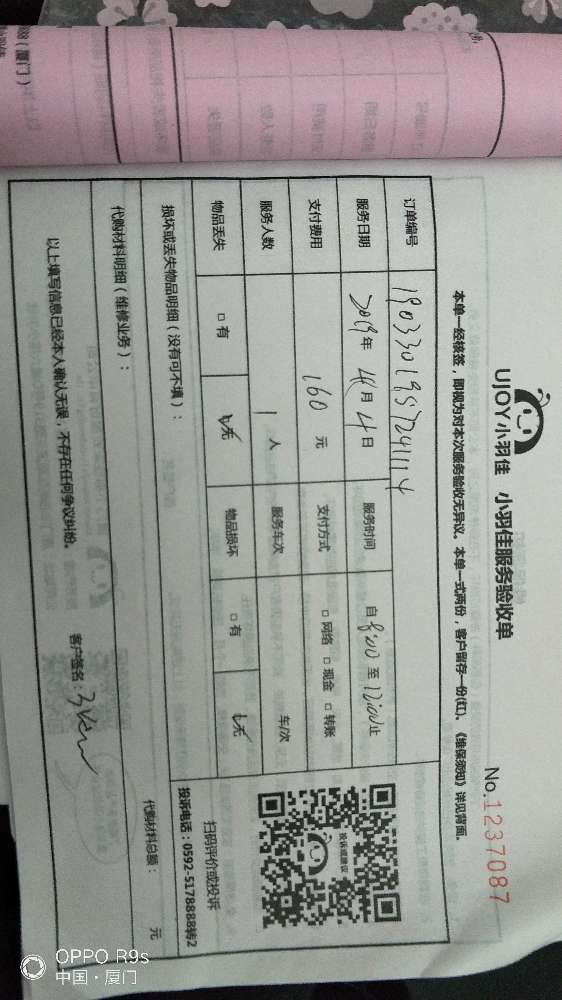 UJOY小羽佳 小羽佳服务验收单
No.1237087
本单一经核签，即视为对本次服务验收无异议。本单一式两份，客户留存一份(红)。《维保须知》详见背面。
订单编号 190330195724114
服务日期 2019年 4月 4日 服务时间 自 8:00 至 12:00 止
支付费用 160 元 支付方式 □ 网络 □ 现金 □ 转账
服务人数 1 人 服务车次 车/次
物品丢失 □ 有 ☑无 物品损坏 □ 有 ☑无
投诉或建议
扫码评价或投诉
投诉电话：0592-5178888转2
损坏或丢失物品明细（没有可不填）：
代购材料明细（维修业务）：
代购材料总额： 元
以上填写信息已经本人确认无误，不存在任何争议纠纷。
客户签名：
（厦门）
OPPO R9s
中国·厦门